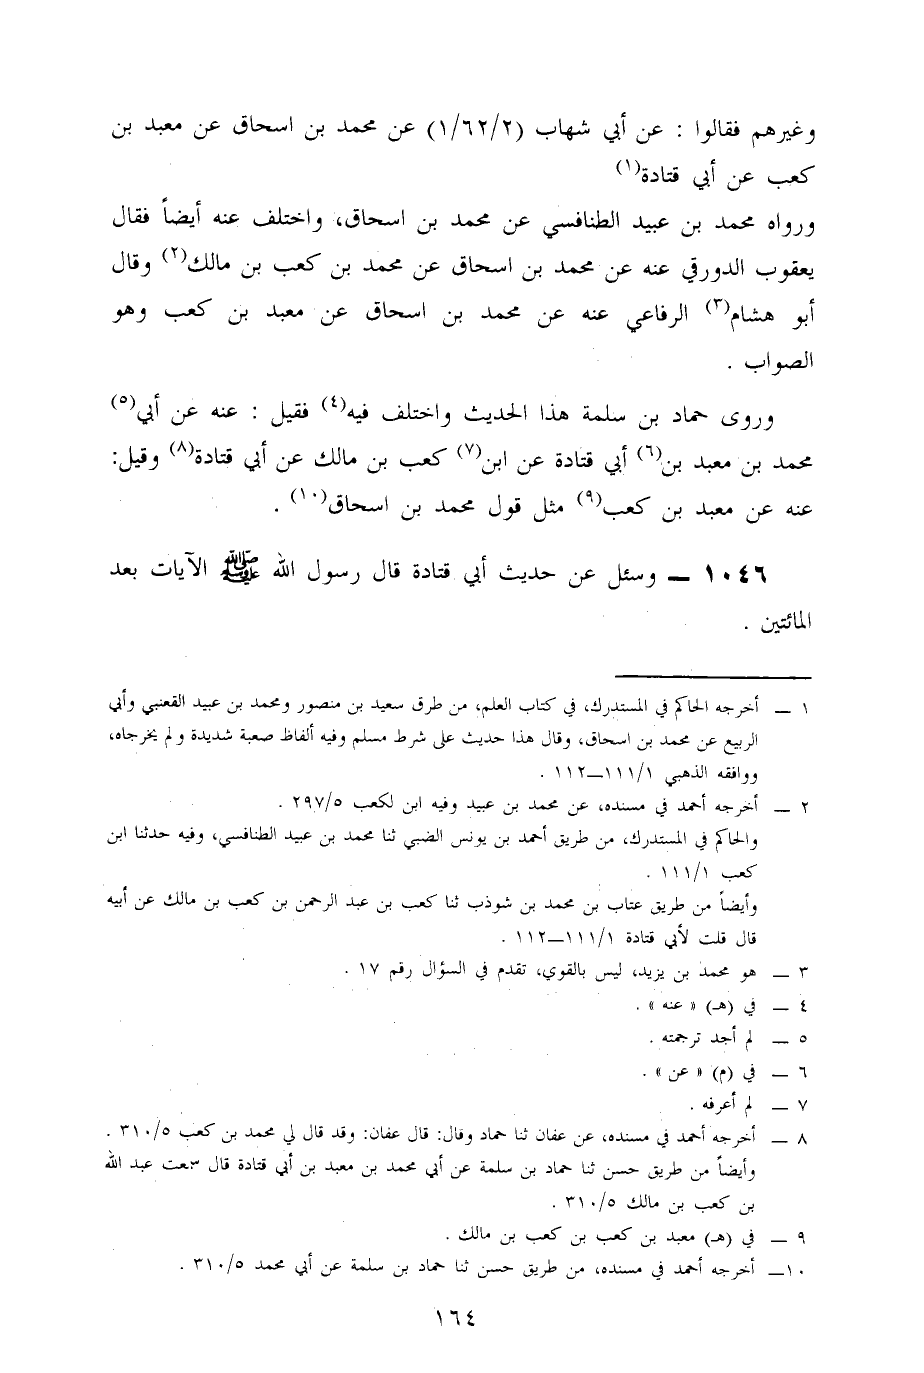 وغيرهم فقالوا : عن أبي شهاب (١/٦٢/٢) عن محمد بن اسحاق عن معبد بن
كعب عن أبي قتادة(١)
ورواه محمد بن عبيد الطنافسي عن محمد بن اسحاق، واختلف عنه أيضاً فقال
يعقوب الدورقي عنه عن محمد بن اسحاق عن محمد بن كعب بن مالك(٢) وقال
أبو هشام(٣) الرفاعي عنه عن محمد بن اسحاق عن معبد بن كعب وهو
الصواب .
وروى حماد بن سلمة هذا الحديث واختلف فيه(٤) فقيل : عنه عن أبي(٥)
محمد بن معبد بن(٦) أبي قتادة عن ابن(٧) كعب بن مالك عن أبي قتادة(٨) وقيل:
عنه عن معبد بن كعب(٩) مثل قول محمد بن اسحاق(١٠) .
١٠٤٦ ــ وسئل عن حديث أبي قتادة قال رسول الله ﷺ الآيات بعد
المائتين .
١ ــ أخرجه الحاكم في المستدرك، في كتاب العلم، من طرق سعيد بن منصور ومحمد بن عبيد القعنبي وأبي
الربيع عن محمد بن اسحاق، وقال هذا حديث على شرط مسلم وفيه ألفاظ صعبة شديدة ولم يخرجاه،
ووافقه الذهبي ١١١/١ــ١١٢ .
٢ ــ أخرجه أحمد في مسنده، عن محمد بن عبيد وفيه ابن لكعب ٢٩٧/٥ .
والحاكم في المستدرك، من طريق أحمد بن يونس الضبي ثنا محمد بن عبيد الطنافسي، وفيه حدثنا ابن
كعب ١١١/١ .
وأيضاً من طريق عتاب بن محمد بن شوذب ثنا كعب بن عبد الرحمن بن كعب بن مالك عن أبيه
قال قلت لأبي قتادة ١١١/١ــ١١٢ .
٣ ــ هو محمد بن يزيد، ليس بالقوي، تقدم في السؤال رقم ١٧ .
٤ ــ في (هـ) « عنه » .
٥ ــ لم أجد ترجمته .
٦ ــ في (م) « عن » .
٧ ــ لم أعرفه .
٨ ــ أخرجه أحمد في مسنده، عن عفان ثنا حماد وقال: قال عفان: وقد قال لي محمد بن كعب ٣١٠/٥ .
وأيضاً من طريق حسن ثنا حماد بن سلمة عن أبي محمد بن معبد بن أبي قتادة قال سمعت عبد الله
بن كعب بن مالك ٣١٠/٥ .
٩ ــ في (هـ) معبد بن كعب بن كعب بن مالك .
١٠ــ أخرجه أحمد في مسنده، من طريق حسن ثنا حماد بن سلمة عن أبي محمد ٣١٠/٥ .
١٦٤